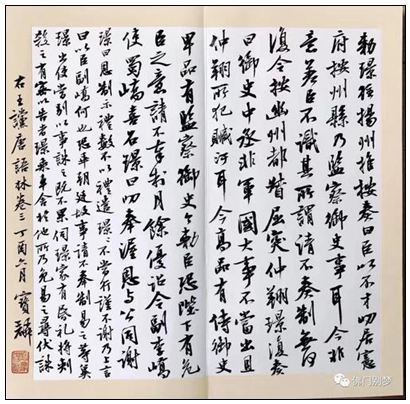 勅璟往揚州推按奏曰臣以不才叨居憲
府按州縣乃監察御史事耳今非
意差臣不識其所謂請不奏制無何
復令按幽州都督屈突仲翔璟復奏
曰御史中丞非軍國大事不當出且
仲翔所犯贓污耳今高品有侍御史
卑品有監察御史今勅臣恐陛下有危
臣之意請不奉制月餘優詔令副李嶠
使蜀嶠喜召璟曰叨奉渥恩與公同謝
璟曰恩制示禮數不以禮遣璟璟不當行謹不謝乃上言
曰以臣副嶠何也恐乖朝廷故事請不奉制易之等冀
璟出使當別以事誅之既不果伺璟家有婚禮將刺
殺之有密以告者璟乘車舍於他所乃免易之尋伏誅
右王讜唐語林卷三丁酉六月 寶麟
佛门别梦